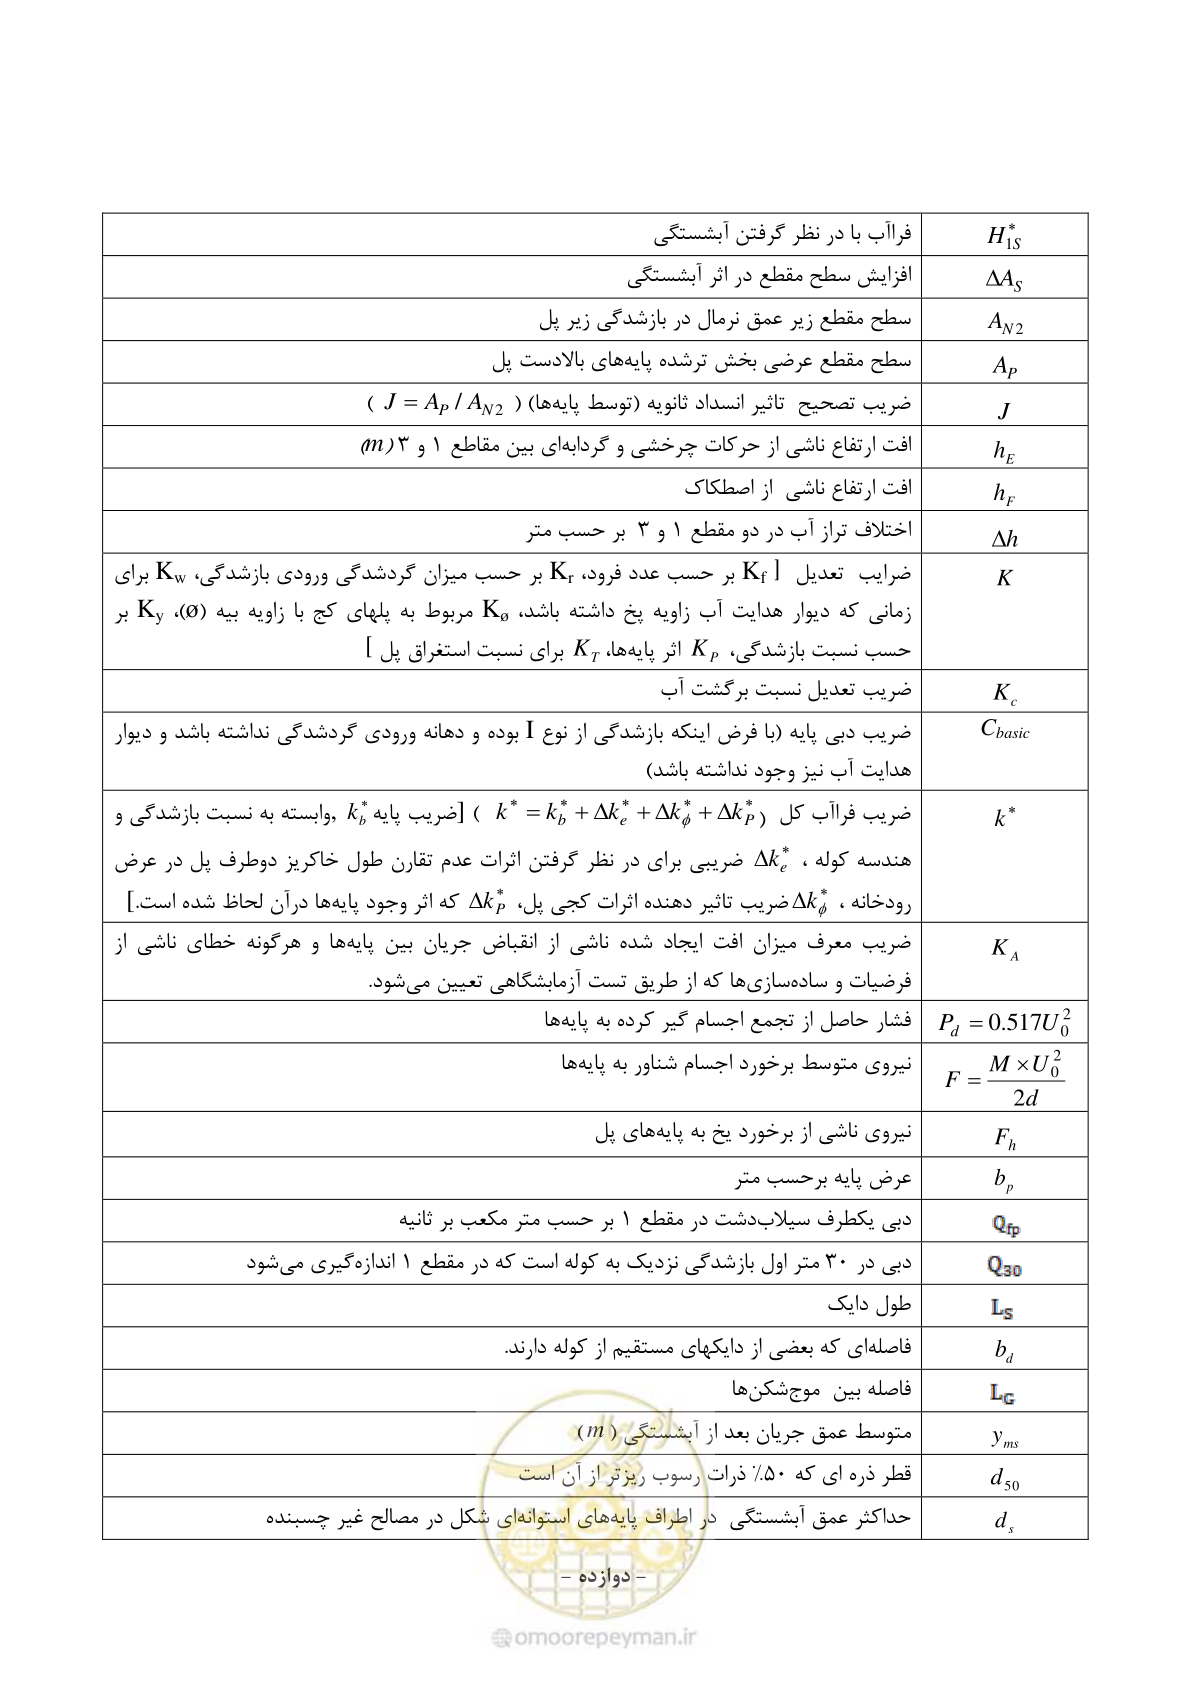 H*1S فراآب با در نظر گرفتن آبشستگی
ΔAS افزایش سطح مقطع در اثر آبشستگی
AN2 سطح مقطع زیر عمق نرمال در بازشدگی زیر پل
AP سطح مقطع عرضی بخش ترشده پایه‌های بالادست پل
J ضریب تصحیح تاثیر انسداد ثانویه (توسط پایه‌ها) ( J = AP / AN2 )
hE افت ارتفاع ناشی از حرکات چرخشی و گردابه‌ای بین مقاطع ۱ و ۳ (m)
hF افت ارتفاع ناشی از اصطکاک
Δh اختلاف تراز آب در دو مقطع ۱ و ۳ بر حسب متر
K ضرایب تعدیل [ Kf بر حسب عدد فرود، Kr بر حسب میزان گردشدگی ورودی بازشدگی، Kw برای
زمانی که دیوار هدایت آب زاویه پخ داشته باشد، Kø مربوط به پلهای کج با زاویه بیه (ø)، Ky بر
حسب نسبت بازشدگی، KP اثر پایه‌ها، KT برای نسبت استغراق پل ]
Kc ضریب تعدیل نسبت برگشت آب
Cbasic ضریب دبی پایه (با فرض اینکه بازشدگی از نوع I بوده و دهانه ورودی گردشدگی نداشته باشد و دیوار
هدایت آب نیز وجود نداشته باشد)
k* ضریب فراآب کل ( k* = k*b + Δk*e + Δk*ϕ + Δk*P ) [ضریب پایه k*b ,وابسته به نسبت بازشدگی و
هندسه کوله ، Δk*e ضریبی برای در نظر گرفتن اثرات عدم تقارن طول خاکریز دوطرف پل در عرض
رودخانه ، Δk*ϕ ضریب تاثیر دهنده اثرات کجی پل، Δk*P که اثر وجود پایه‌ها درآن لحاظ شده است.]
KA ضریب معرف میزان افت ایجاد شده ناشی از انقباض جریان بین پایه‌ها و هرگونه خطای ناشی از
فرضیات و ساده‌سازی‌ها که از طریق تست آزمایشگاهی تعیین می‌شود.
Pd = 0.517U0² فشار حاصل از تجمع اجسام گیر کرده به پایه‌ها
F = M × U0² / 2d نیروی متوسط برخورد اجسام شناور به پایه‌ها
Fh نیروی ناشی از برخورد یخ به پایه‌های پل
bp عرض پایه برحسب متر
Qfp دبی یکطرف سیلاب‌دشت در مقطع ۱ بر حسب متر مکعب بر ثانیه
Q30 دبی در ۳۰ متر اول بازشدگی نزدیک به کوله است که در مقطع ۱ اندازه‌گیری می‌شود
LS طول دایک
bd فاصله‌ای که بعضی از دایکهای مستقیم از کوله دارند.
LG فاصله بین موج‌شکن‌ها
yms متوسط عمق جریان بعد از آبشستگی ( m )
d50 قطر ذره ای که ۵۰٪ ذرات رسوب ریزتر از آن است
ds حداکثر عمق آبشستگی در اطراف پایه‌های استوانه‌ای شکل در مصالح غیر چسبنده
- دوازده -
omoorepeyman.ir